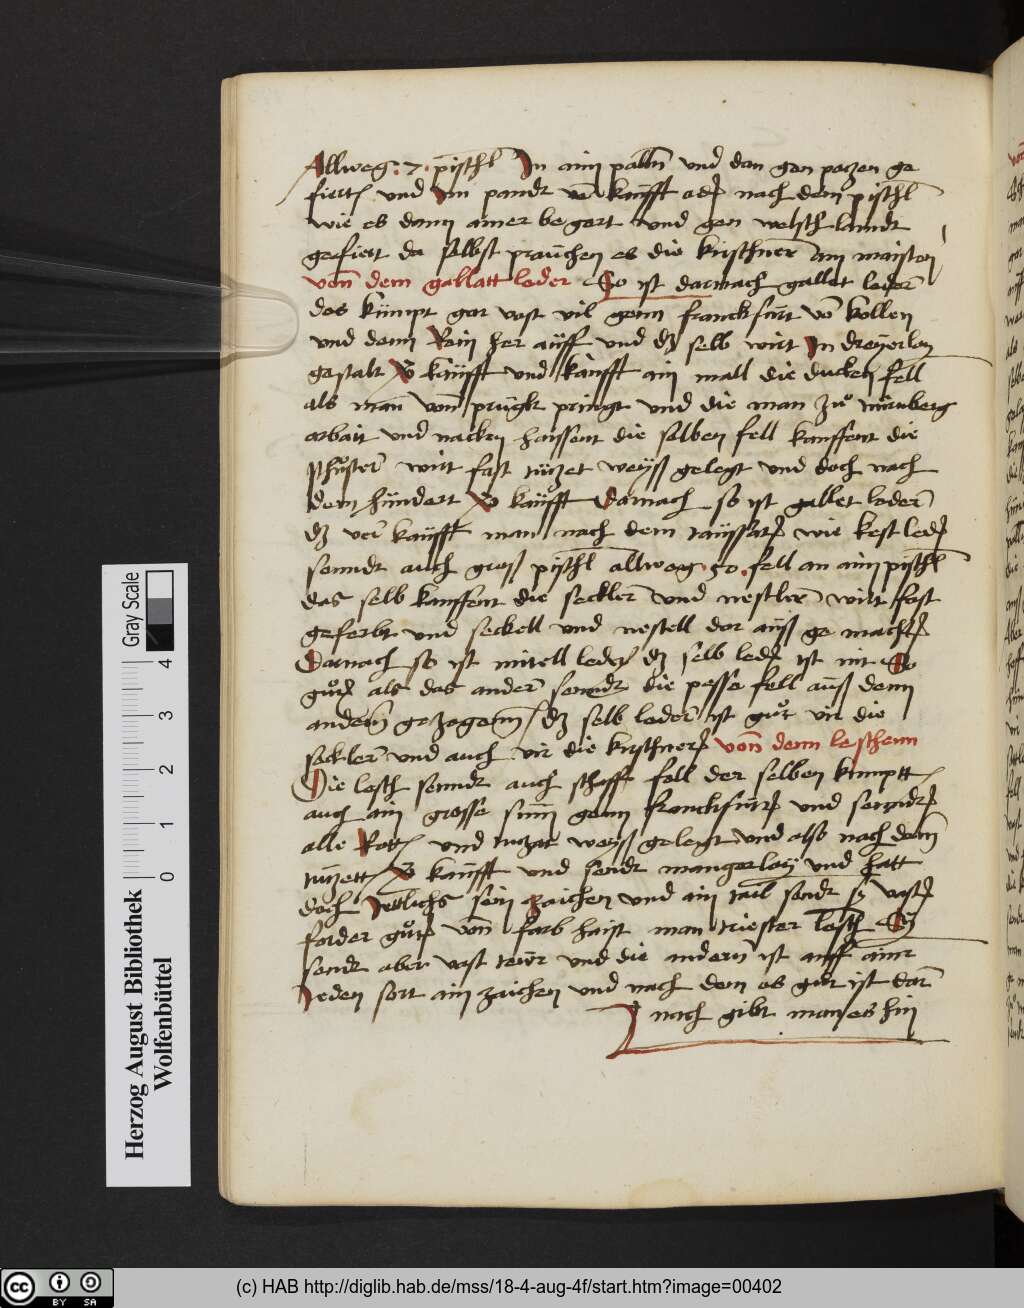 Allweg · 7 · pischl In ain palln und dan gen pozen ge
fiertt und Im pandt v̄ kaufft oder nach dem pischl
wie es dann ainer begert und gen welsch landt
gefiert da selbst prauchen es die kirschner am maisten
vonn dem gallatt leder So ist darnach gallet leder
das kumpt gar vast vil genn franckfurt vō kollen
und dann Rein her auff und dz selb wirt In dreyerlay
gestalt v̄ kaufft und kaufft ain mall die ducken fell
als man vonn prugk pringt und die man zu nurnberg
arbait und nacken haissent die selben fell kauffent die
schuster wirt fast tutzet weyss gelegt und doch nach
dem hundert v̄ kaufft Darnach so ist gallet leder
dz ver kaufft man nach dem taussatt wie kest leder
senndt auch gross pischl allweg · 50 · fell an aim pischl
das selb kauffent die seckler und nestler wirt fast
geferbt und seckell und nestell dar auss ge machtt
Darnach so ist mitell leder dz selb leder ist nit So
gutt als das ander senndt die posse fell auss dem
andern gezogenn / dz selb leder ist gut vir die
seckler und auch vir die kirschner vonn denn leschenn
Die lesch senndt auch schoff fell der selben kumptt
auch ain grosse sum genn franckfurtt und senndt
alle Rott und tutzet weyss gelegt und also nach dem
tutzett v̄ kaufft und sendt mangerlay und hatt
doch Jettlichs sein zaichen und ain tail sendt sy vast
foder gutt vonn farb haist man triester lesch Dy
sendt aber vast teur und die andern ist auff ainer
Jeden sort ain zaichen und nach dem es gut ist dar
nach gibt man es hin
Gray Scale
0 1 2 3 4
Herzog August Bibliothek
Wolfenbüttel
cc BY SA
(c) HAB http://diglib.hab.de/mss/18-4-aug-4f/start.htm?image=00402